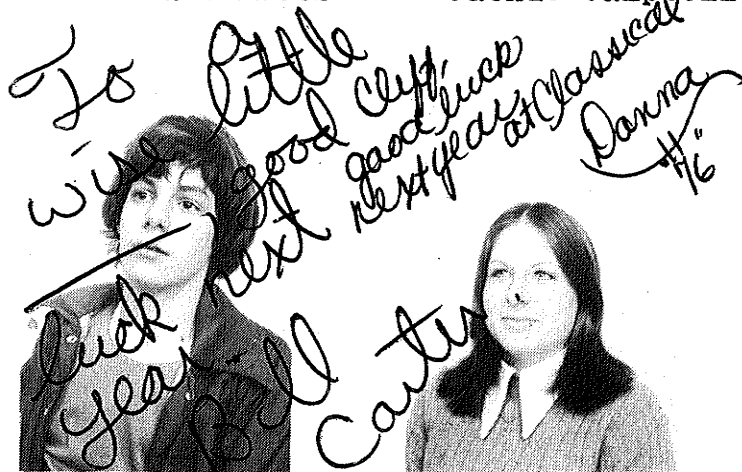 To
wise little
good
luck next
year.
Bill
Carter
Cliff,
good luck
next year
at Classical
Donna
"76"